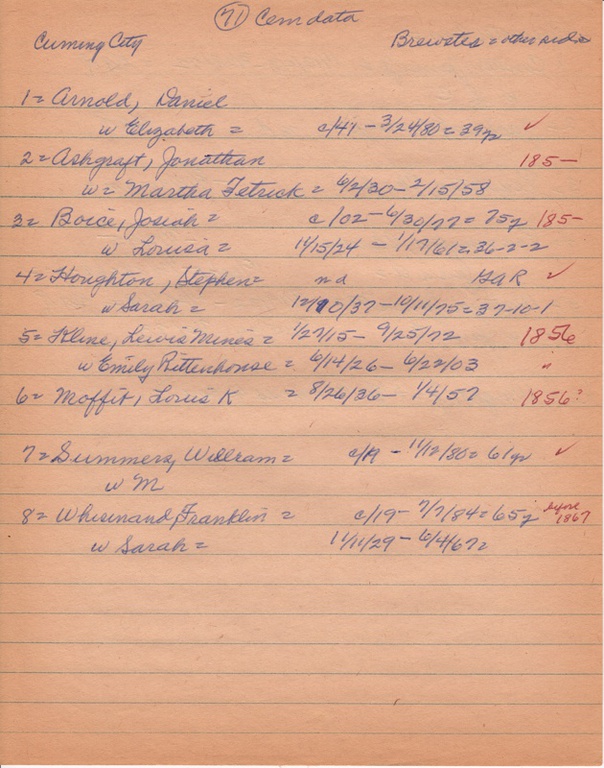 71 Cem data
Cuming City Brewster = other side
1 = Arnold, Daniel
w Elizabeth = c/41 - 3/24/80 = 39y ✓
2 = Ashgraft, Jonathan 185-
w = Martha Tetrick = 6/2/30 - 2/15/58
3 = Boice, Josiah = c/02 - 6/30/77 = 75y 185-
w Louisa = 11/15/24 - 1/17/61 = 36-2-2
4 = Houghton, Stephen = nd GAR ✓
w Sarah = 12/10/37 - 10/11/75 = 37-10-1
5 = Kline, Lewis Mines = 1/27/15 - 9/25/72 1856
w Emily Rittenhouse = 6/14/26 - 6/22/03 "
6 = Moffit, Louis K = 8/26/36 - 1/4/57 1856?
7 = Summers, William = c/19 - 11/12/80 = 61y ✓
w M
8 = Whisinand, Franklin = c/19 - 7/7/84 = 65y before 1867
w Sarah = 11/11/29 - 6/4/67 =